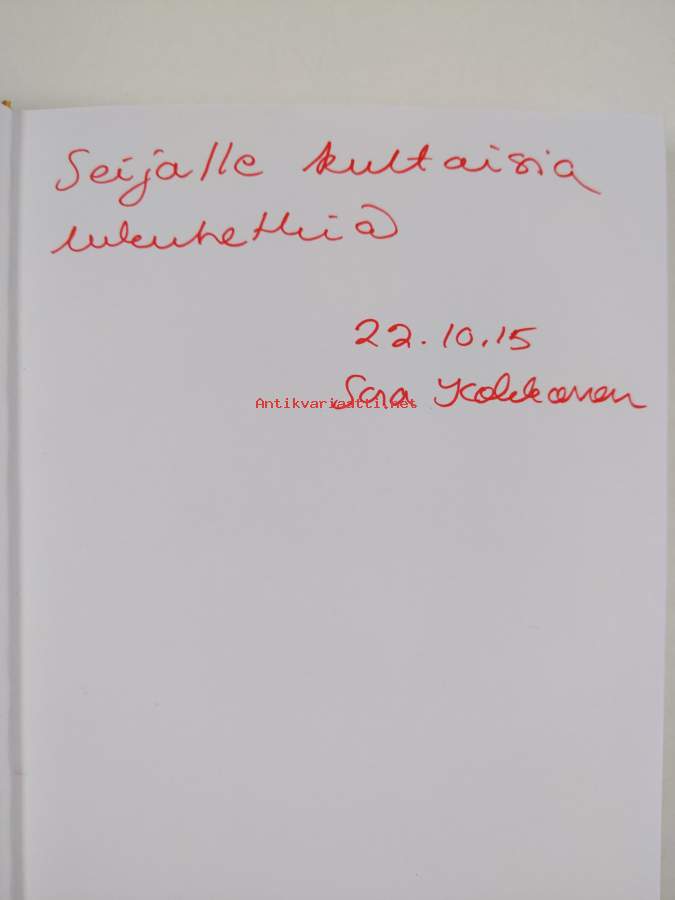 Seijalle kultaisia
lukuhetkiä
22.10.15
Antikvariaatti.net
Sara Kokkonen